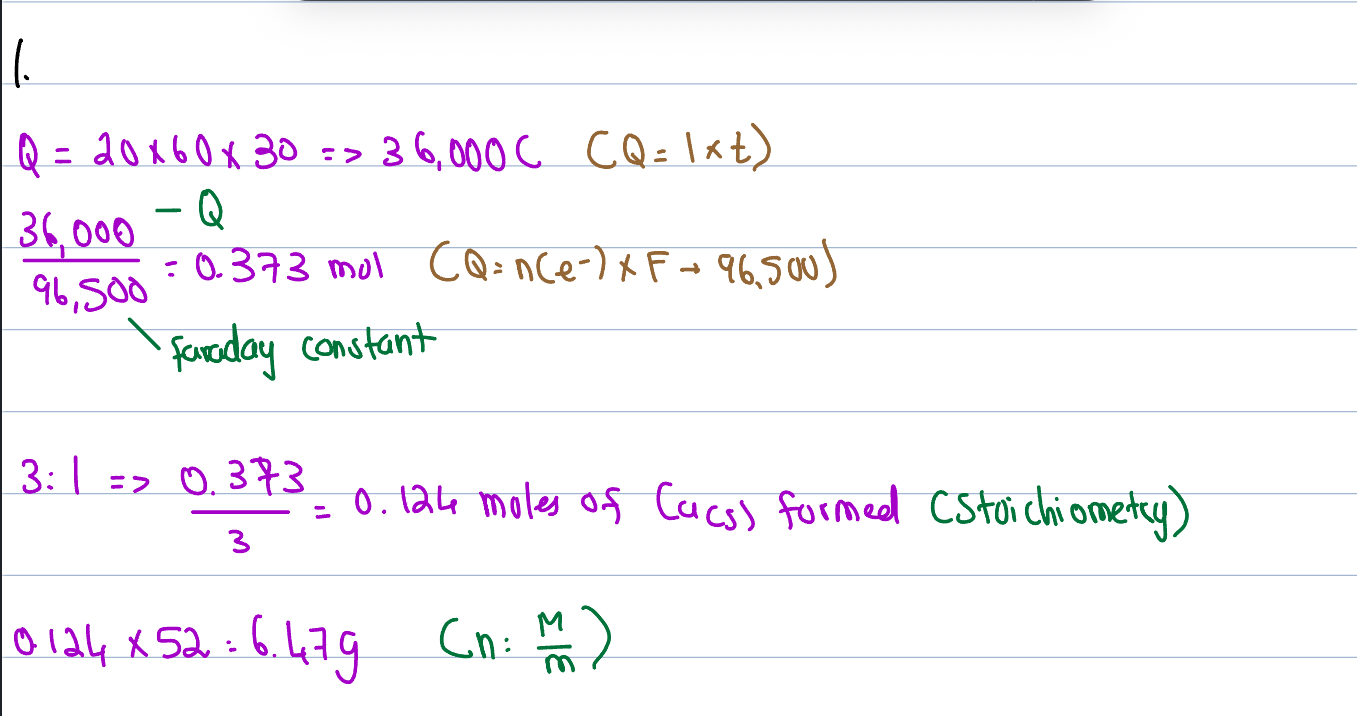 1.
Q = 20 x 60 x 30 => 36,000C (Q = I x t)
36,000 - Q
96,500 = 0.373 mol (Q = n(e-) x F → 96,500)
faraday constant
3:1 => 0.373
3 = 0.124 moles of Cu(s) formed (Stoichiometry)
0.124 x 52 = 6.47g (n = M
m)